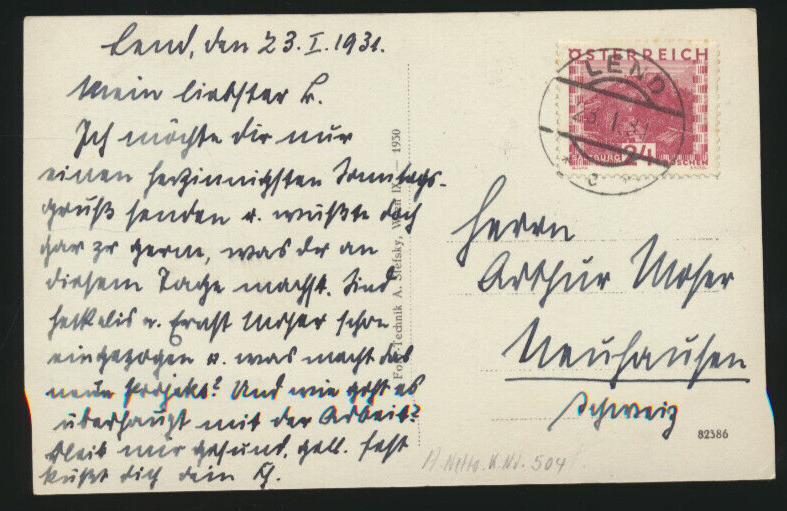 Lend, den 23. I. 1931.
Mein liebster A.
Ich möchte dir nur
einen herzinnigsten Sonntags-
gruß senden u. wüßte doch
gar zu gerne, was du an
diesem Tage machst. Sind
u. Ernst Moser schon
eingezogen u. was macht das
neue Projekt? Und wie geht es
überhaupt mit der Arbeit?
Bleib mir gesund, gell. Fest
küßt dich dein
Foto-Technik A. Stefsky, Wien IX — 1930
ÖSTERREICH
LEND
23. I. 31
SALZBURG 24 GROSCHEN
Herrn
Arthur Moser
Neuhausen
Schweiz
82386
504